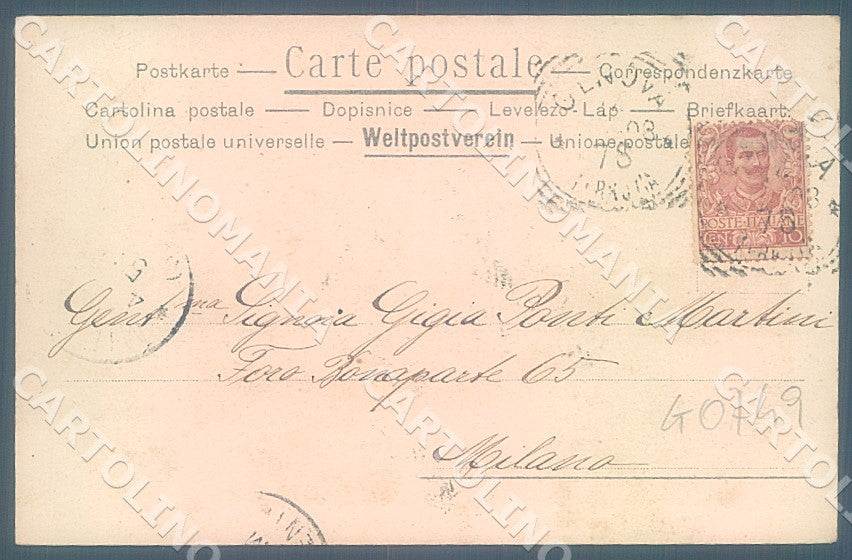 Postkarte — Carte postale — Correspondenzkarte
Cartolina postale — Dopisnice — Levelezo-Lap — Briefkaart.
Union postale universelle — Weltpostverein — Unione postale
GENOVA
03
78
FERROVIA
POSTE ITALIANE
CENT 10
78
Gent.ma Signora Gigia Ponti Martini
Foro Bonaparte 65
Milano
G0749
CARTOLINOMANIA